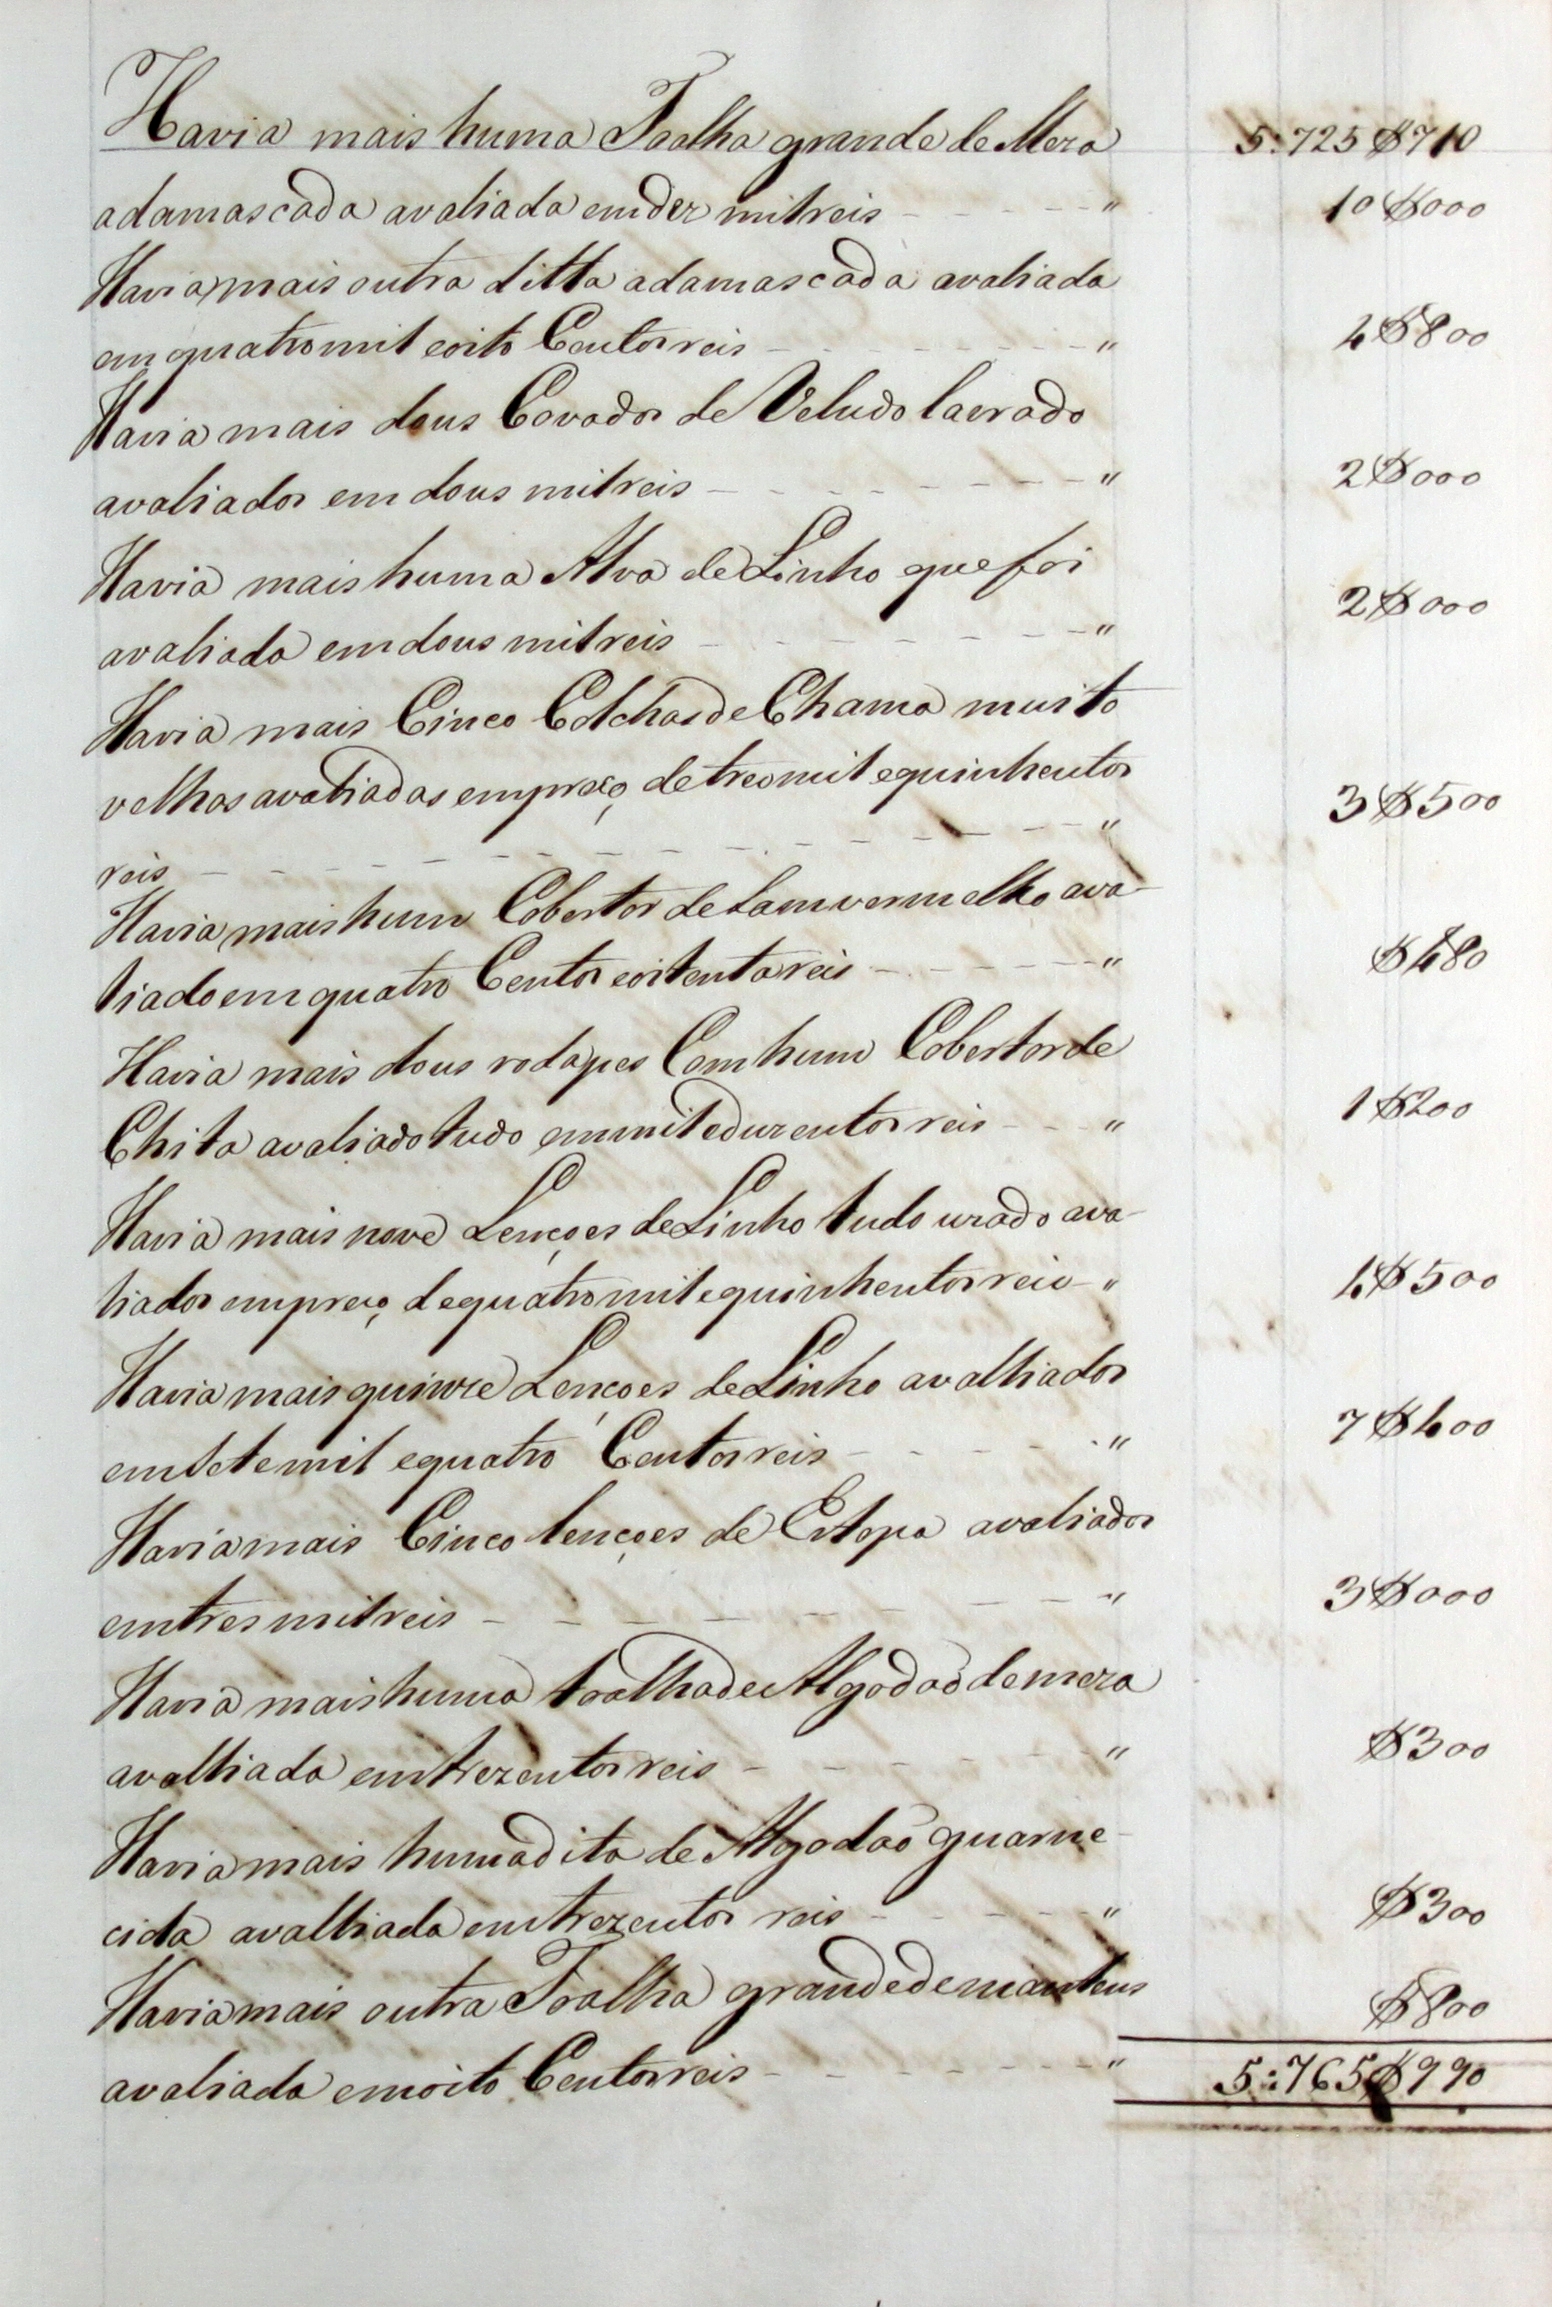 Havia mais huma Toalha grande de Meza 5:725$710
adamascada avaliada em dez mil reis - - - - - " 10$000
Havia mais outra ditta adamascada avaliada
em quatro mil e oito Centos reis - - - - - - - " 4$800
Havia mais dous Covados de Veludo lavrado
avaliados em dous mil reis - - - - - - - - " 2$000
Havia mais huma Alva de Linho que foi
avaliada em dous mil reis - - - - - - - - " 2$000
Havia mais Cinco Colchas de Chama muito
velhas avaliadas em preço de tres mil e quinhentos
reis - - - - - - - - - - - - - - " 3$500
Havia mais hum Cobertor de Lam vermelho ava-
liado em quatro Centos e oitenta reis - - - - - " $480
Havia mais dous rodapes Com hum Cobertor de
Chita avaliado tudo em mil e duzentos reis - - - " 1$200
Havia mais nove Lençoes de Linho tudo uzado ava-
liados em preço de quatro mil e quinhentos reis - " 4$500
Havia mais quinze Lençoes de Linho avalliados
em Sete mil e quatro Centos reis - - - - - - " 7$400
Havia mais Cinco lençoes de Estopa avaliados
em tres mil reis - - - - - - - - - - " 3$000
Havia mais huma toalha de Algodaõ de meza
avalliada em trezentos reis - - - - - - - " $300
Havia mais huma dita de Algodaõ guarne-
cida avalliada em trezentos reis - - - - - " $300
Havia mais outra Toalha grande de manteus $800
avaliada em oito Centos reis - - - - - - - " 5:765$990